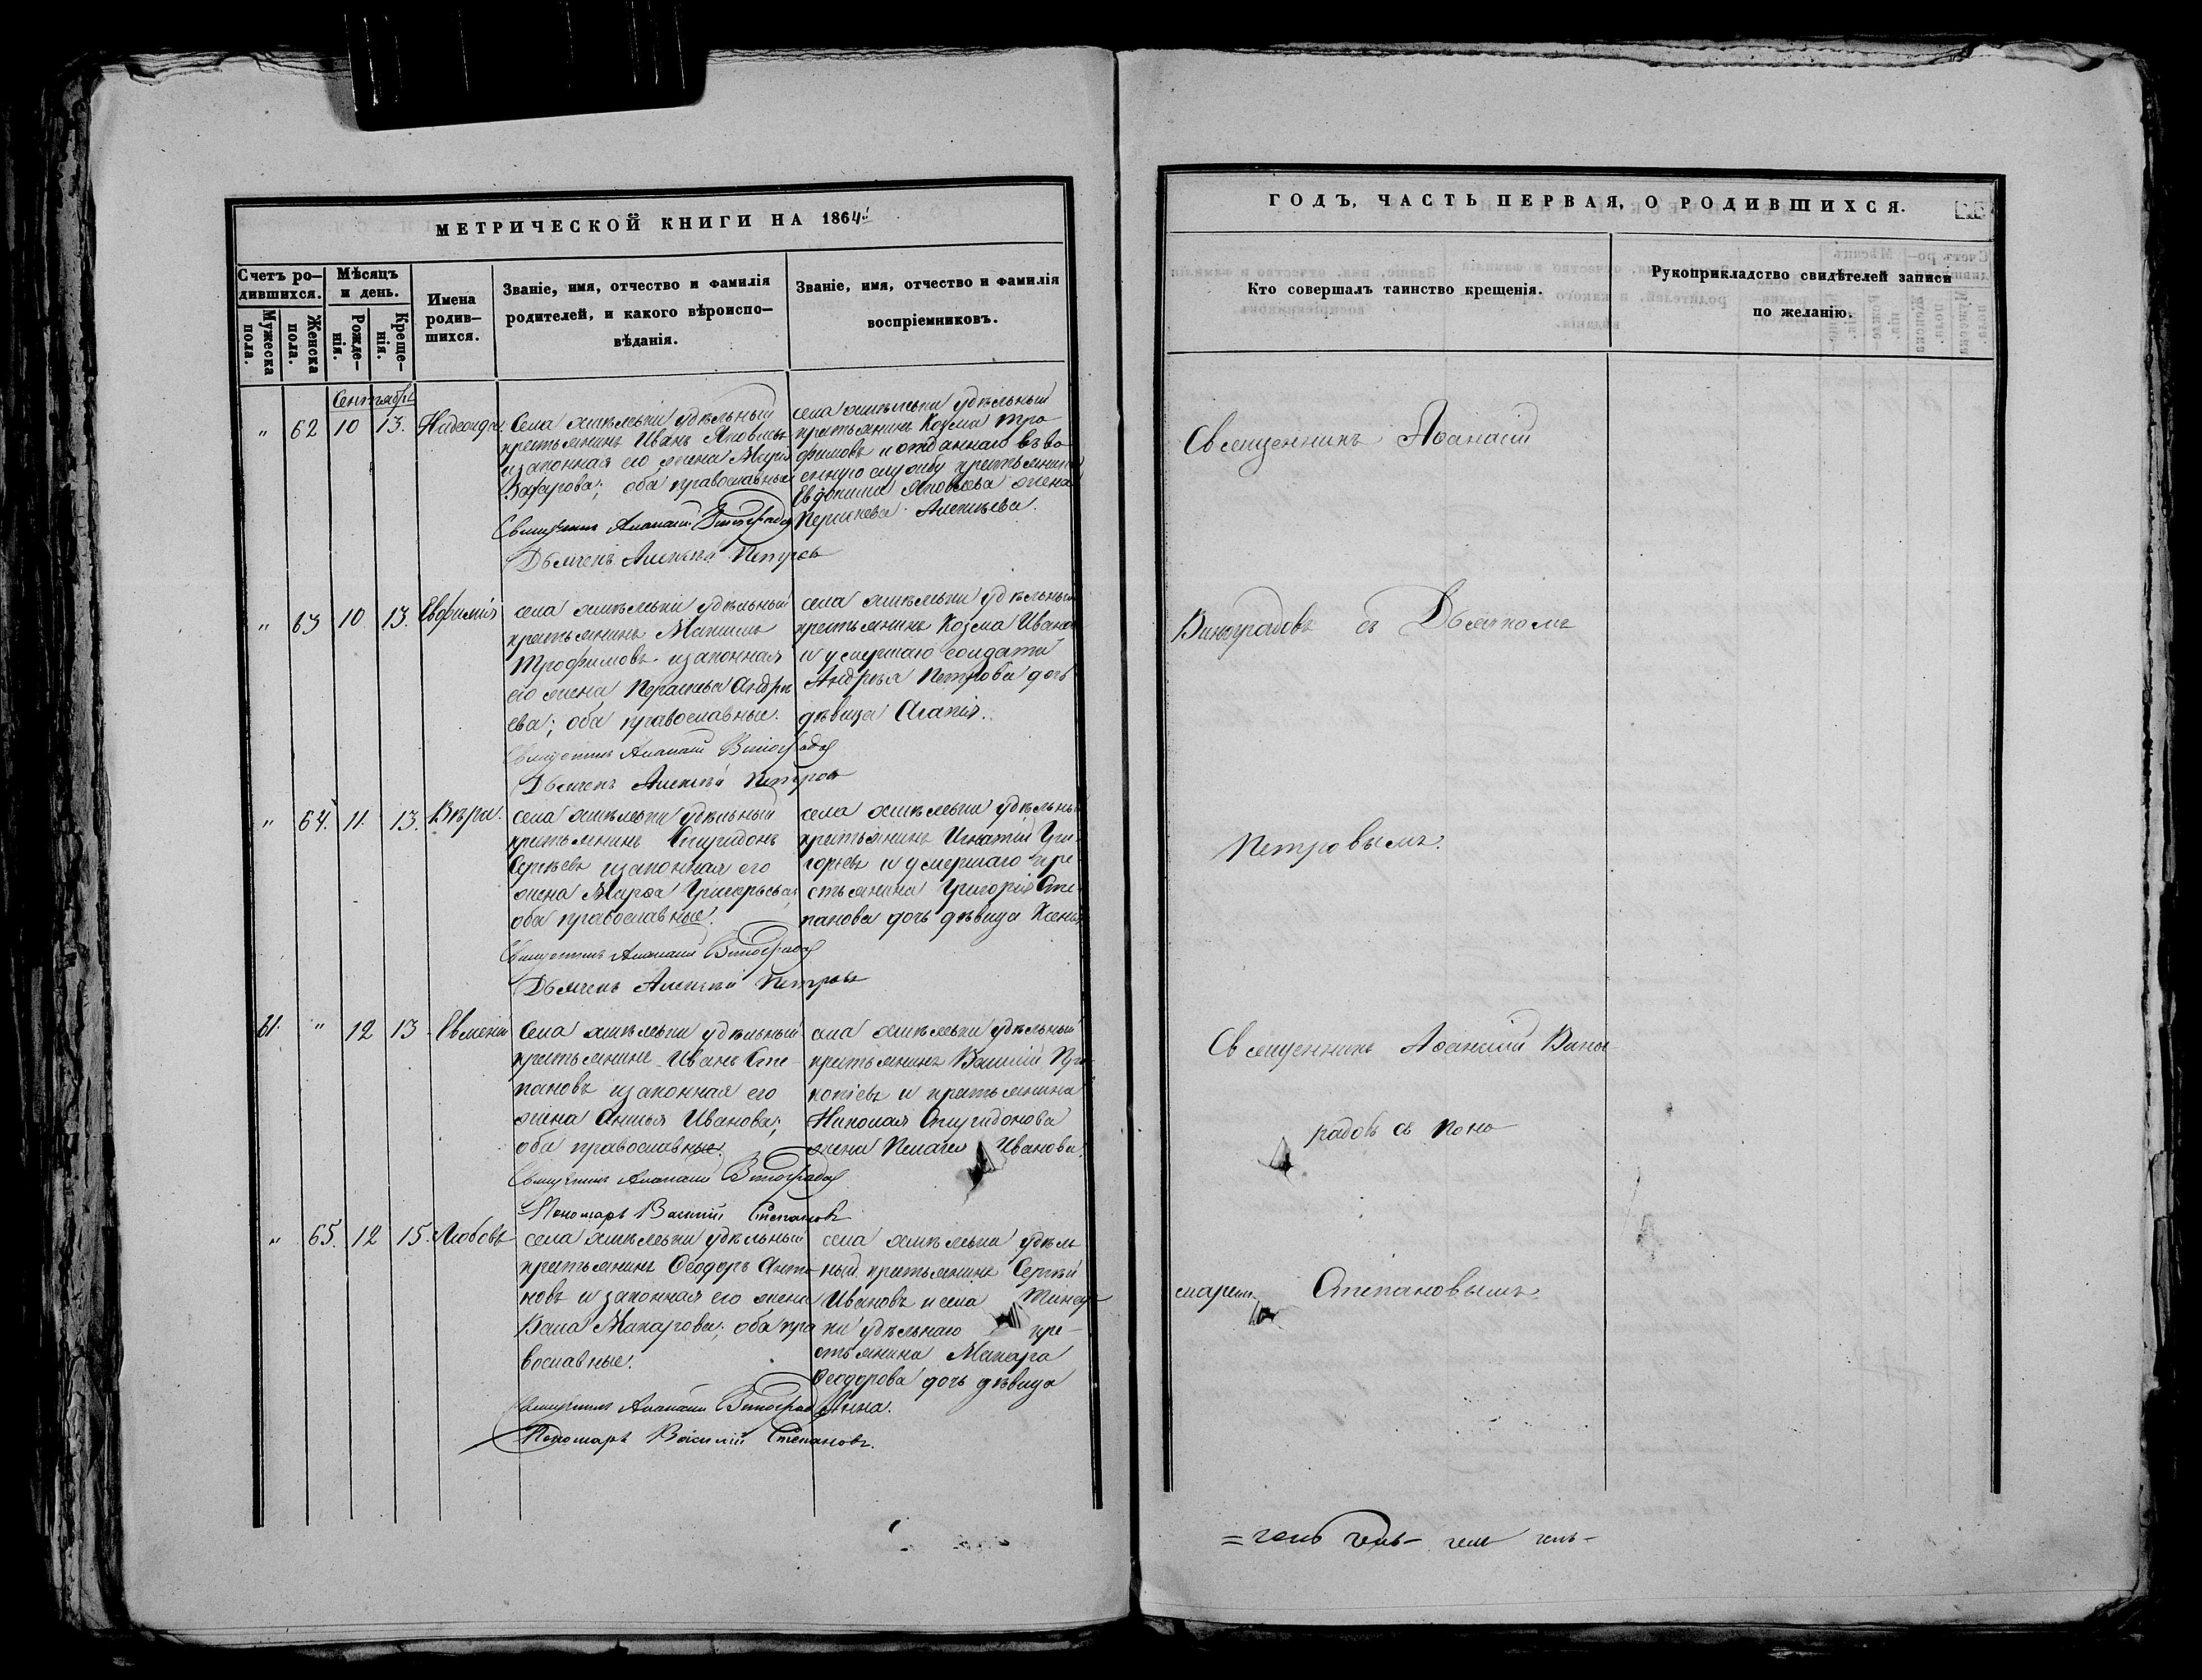 МЕТРИЧЕСКОЙ КНИГИ НА 1864й
Счетъ ро-
дившихся.
Мужеска
пола.
Женска
пола.
Мѣсяцъ
и день.
Рожде-
нія.
Креще-
нія.
Имена
родив-
шихся.
Званіе, имя, отчество и фамилія
родителей, и какого вѣроиспо-
вѣданія.
Званіе, имя, отчество и фамилія
воспріемниковъ.
Сентябрь
" 62 10 13. Надежда.
Села удѣльный
крестьянинъ Иванъ Яковлевъ
и законная его жена Марія
Захарова; оба православные
Священникъ Аѳанасій Виноградовъ
Дьячекъ Алексѣй Петровъ
села удѣльный
крестьянинъ Козма Тро
фимовъ и отданнаго въ во
енную службу крестьянина
Евдокима Яковлева жена
Алексѣева.
" 63 10 13. Евфимія
села удѣльный
крестьянинъ Максимъ
Трофимовъ и законная
его жена Параскева Андре
ева; оба православные.
Священникъ Аѳанасій Виноградовъ
Дьячекъ Алексѣй Петровъ
села удѣльный
крестьянинъ Козма Ивановъ
и умершаго солдата
Андрея Петрова дочь
дѣвица Агапія.
" 64. 11. 13. Вѣра.
села удѣльный
крестьянинъ Спиридонъ
Сергѣевъ и законная его
жена Марѳа Григорьева;
оба православные.
Священникъ Аѳанасій Виноградовъ
Дьячекъ Алексѣй Петровъ
села удѣльный
крестьянинъ Игнатій Гри-
горьевъ и умершаго кре
стьянина Григорія Сте
панова дочь дѣвица Ксенія
61. " 12 13. Евменій
Села удѣльный
крестьянинъ Иванъ Сте-
пановъ и законная его
жена Анисья Иванова;
оба православные.
Священникъ Аѳанасій Виноградовъ
Пономарь Василій Степановъ
села удѣльный
крестьянинъ Василій Про
копіевъ и крестьянина
Николая Спиридонова
жена Пелагея Иванова.
" 65. 12 15. Любовь
села удѣльный
крестьянинъ Ѳеодоръ Анто-
новъ и законная его жена
Васса Макарова; оба пра
вославные.
Священникъ Аѳанасій Виноградовъ
Пономарь Василій Степановъ.
села удѣль
ный крестьянинъ Сергѣй
Ивановъ и села
ки удѣльнаго кре-
стьянина Макара
Ѳеодорова дочь дѣвица
Анна.
ГОДЪ, ЧАСТЬ ПЕРВАЯ, О РОДИВШИХСЯ.
Кто совершалъ таинство крещенія.
Рукоприкладство свидѣтелей записи
по желанію.
Священникъ Аѳанасій
Виноградовъ съ Дьячкомъ
Петровымъ.
Священникъ Аѳанасій Виног
радовъ съ Поно
маремъ Степановымъ.